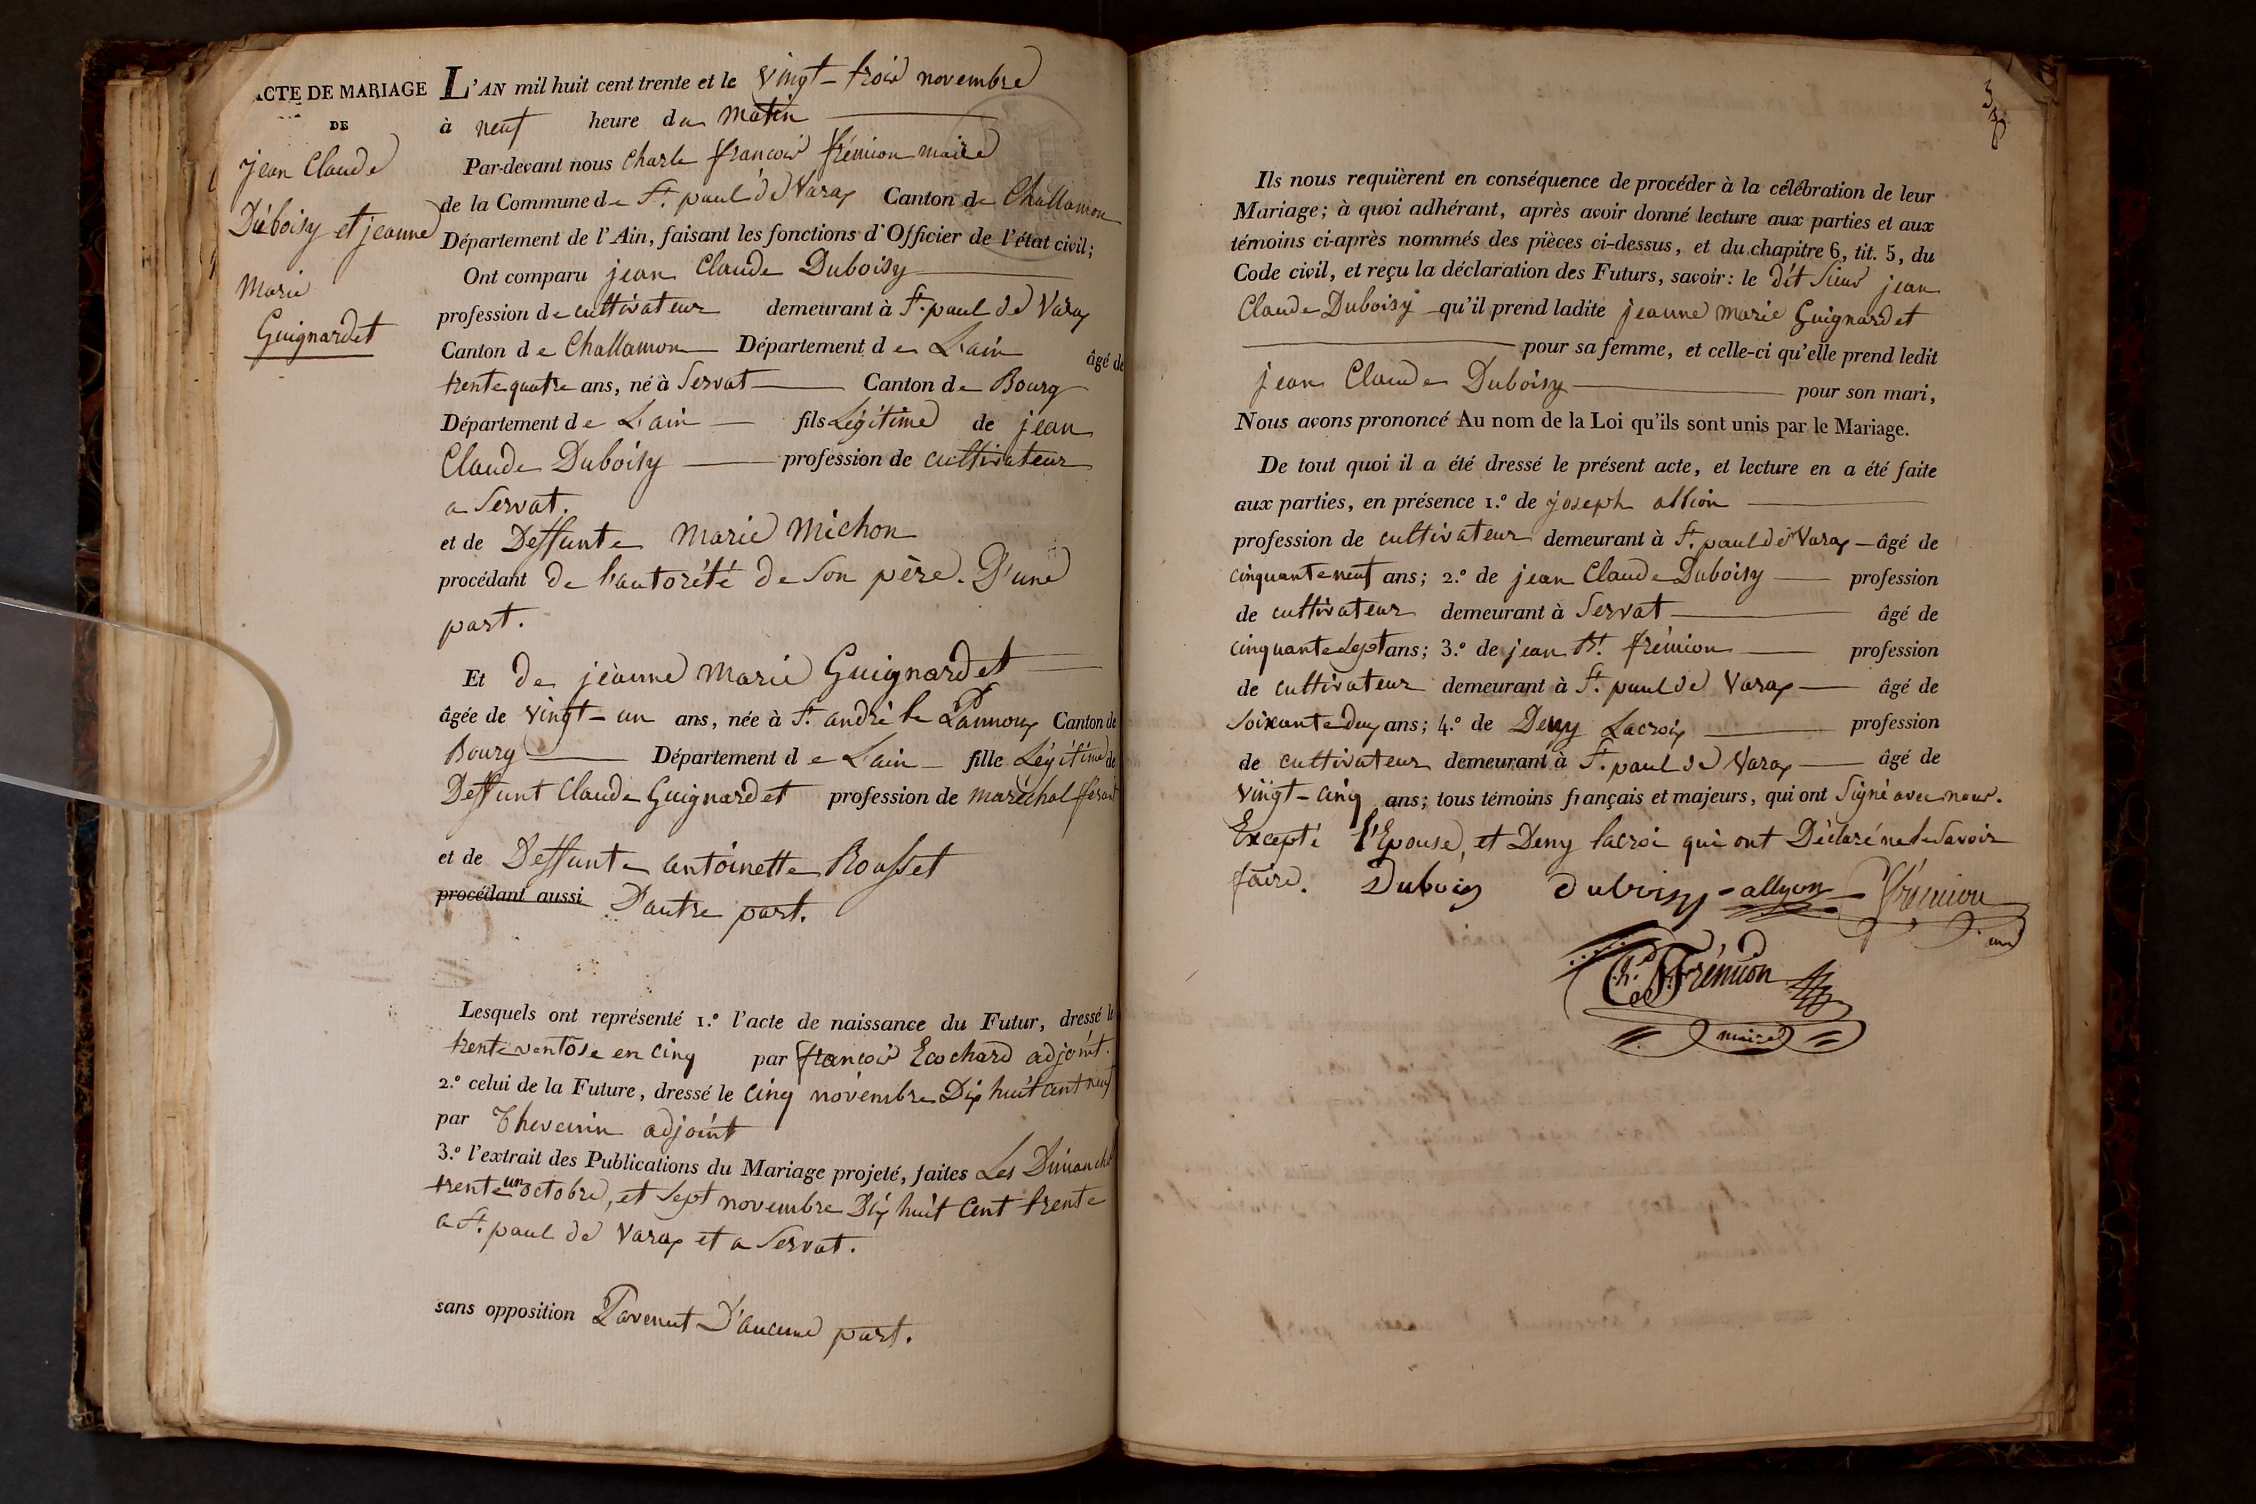 ACTE DE MARIAGE
DE
jean Claude
Duboisy et jeanne
Marie
Guignardet
L'AN mil huit cent trente et le vingt-trois novembre
à neuf heure du matin
Par-devant nous Charle françois frémion maire
de la Commune de St. paul de Varax Canton de Challamon
Département de l'Ain, faisant les fonctions d'Officier de l'état civil;
Ont comparu jean Claude Duboisy
profession de cultivateur demeurant à St. paul de Varax
Canton de Challamon Département de L'ain âgé de
trente quatre ans, né à Servat Canton de Bourg
Département de L'ain fils Légitime de jean
Claude Duboisy profession de cultivateur
a Servat.
et de Deffunte Marie Michon
procédant de l'autorité de son père. D'une
part.
Et de jeanne Marie Guignardet
âgée de vingt-un ans, née à St. andré le Pannoux Canton de
Bourg Département de L'ain fille Légitime de
Deffunt Claude Guignardet profession de maréchal férant
et de Deffunte antoinette Rousset
procédant aussi D'autre part.
Lesquels ont représenté 1.º l'acte de naissance du Futur, dressé le
trente ventose en cinq par françois Ecochard adjoint.
2.º celui de la Future, dressé le cinq novembre Dix huit cent neuf
par Thevenin adjoint
3.º l'extrait des Publications du Mariage projeté, faites Les Dimanche
trente un octobre, et sept novembre Dix huit cent trente
a St. paul de Varax et a Servat.
sans opposition Parvenut D'aucune part.
Ils nous requièrent en conséquence de procéder à la célébration de leur
Mariage; à quoi adhérant, après avoir donné lecture aux parties et aux
témoins ci-après nommés des pièces ci-dessus, et du chapitre 6, tit. 5, du
Code civil, et reçu la déclaration des Futurs, savoir: le dit Sieur jean
Claude Duboisy qu'il prend ladite jeanne marie Guignardet
pour sa femme, et celle-ci qu'elle prend ledit
jean Claude Duboisy pour son mari,
Nous avons prononcé Au nom de la Loi qu'ils sont unis par le Mariage.
De tout quoi il a été dressé le présent acte, et lecture en a été faite
aux parties, en présence 1.º de joseph allion
profession de cultivateur demeurant à St. paul de Varax âgé de
cinquante neuf ans; 2.º de jean Claude Duboisy profession
de cultivateur demeurant à Servat âgé de
cinquante sept ans; 3.º de jean Bt. frémion profession
de cultivateur demeurant à St. paul de Varax âgé de
soixante deux ans; 4.º de Deny Lacroix profession
de cultivateur demeurant à St. paul de Varax âgé de
vingt-cinq ans; tous témoins français et majeurs, qui ont signé avec nous.
Excepté l'Epouse, et Deny lacroi qui ont Déclaré ne le Savoir
faire. Dubois duboisy allyon frémion
Ch. F. Frémion
maire